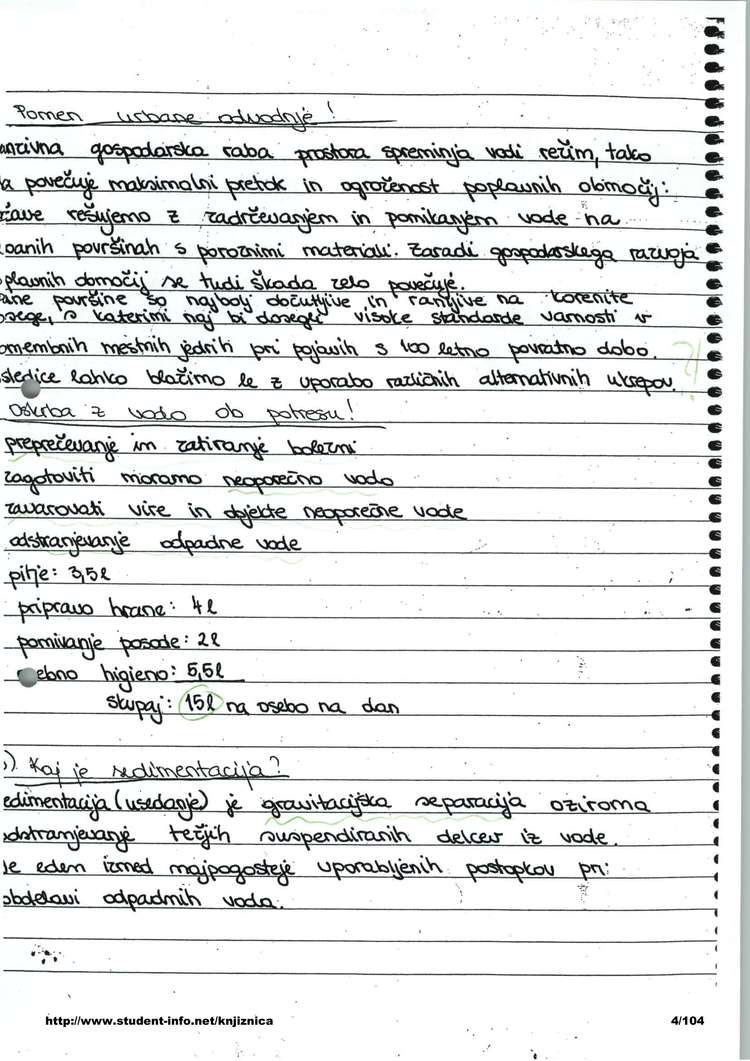 Pomen urbane odvodnje!
anzivna gospodarska raba prostora spreminja vodi režim, tako
a povečuje maksimalni pretok in ogroženost poplavnih območij:
žave rešujemo z zadrževanjem in pomikanjem vode na
oanih površinah s poroznimi materiali. Zaradi gospodarskega razvoja
plavnih območij se tudi škoda zelo povečuje.
površine so najbolj občutljive in ranljive na korenite
osege, s katerimi naj bi dosegli visoke standarde varnosti v
omembnih mestnih jedrih pri pojavih s 100 letno povratno dobo.
sledice lahko blažimo le z uporabo različnih alternativnih ukrepov.
?!
Oskrba z vodo ob potresu!
preprečevanje in zatiranje bolezni
zagotoviti moramo neoporečno vodo
zavarovati vire in objekte neoporečne vode
odstranjevanje odpadne vode
pitje: 3,5l
pripravo hrane: 4l
pomivanje posode: 2l
ebno higieno: 5,5l
skupaj: 15l na osebo na dan
) Kaj je sedimentacija?
edimentacija (usedanje) je gravitacijska separacija oziroma
odstranjevanje težjih suspendiranih delcev iz vode.
Je eden izmed najpogosteje uporabljenih postopkov pri
obdelavi odpadnih voda.
http://www.student-info.net/knjiznica 4/104